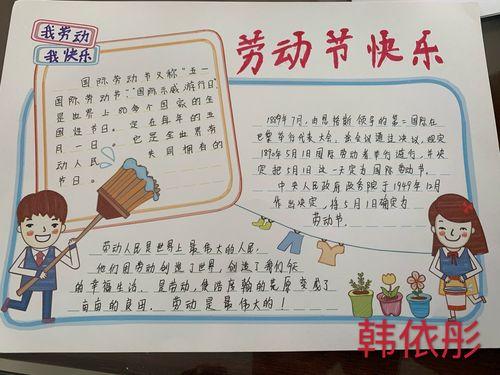 我劳动
我快乐
劳动节快乐
国际劳动节又称"五一
国际劳动节"."国际示威游行日"
是世界上80多个国家的全
国性节日。定在每年的五
月一日。也是全世界劳
动人民共同拥有的
节日。
1889年7月,由恩格斯领导的第二国际在
巴黎举行代表大会。会议通过决议,规定
1890年5月1日国际劳动者举行游行,并决
定把5月1日这一天定为国际劳动节。
中央人民政府政务院于1949年12月
作出决定,将5月1日确定为
劳动节。
劳动人民是世界上最伟大的人民,
他们用劳动创造了世界,创造了我们
的幸福生活。是劳动,使浩瀚的荒原变成了
亩亩的良田。劳动是最伟大的!
韩依彤